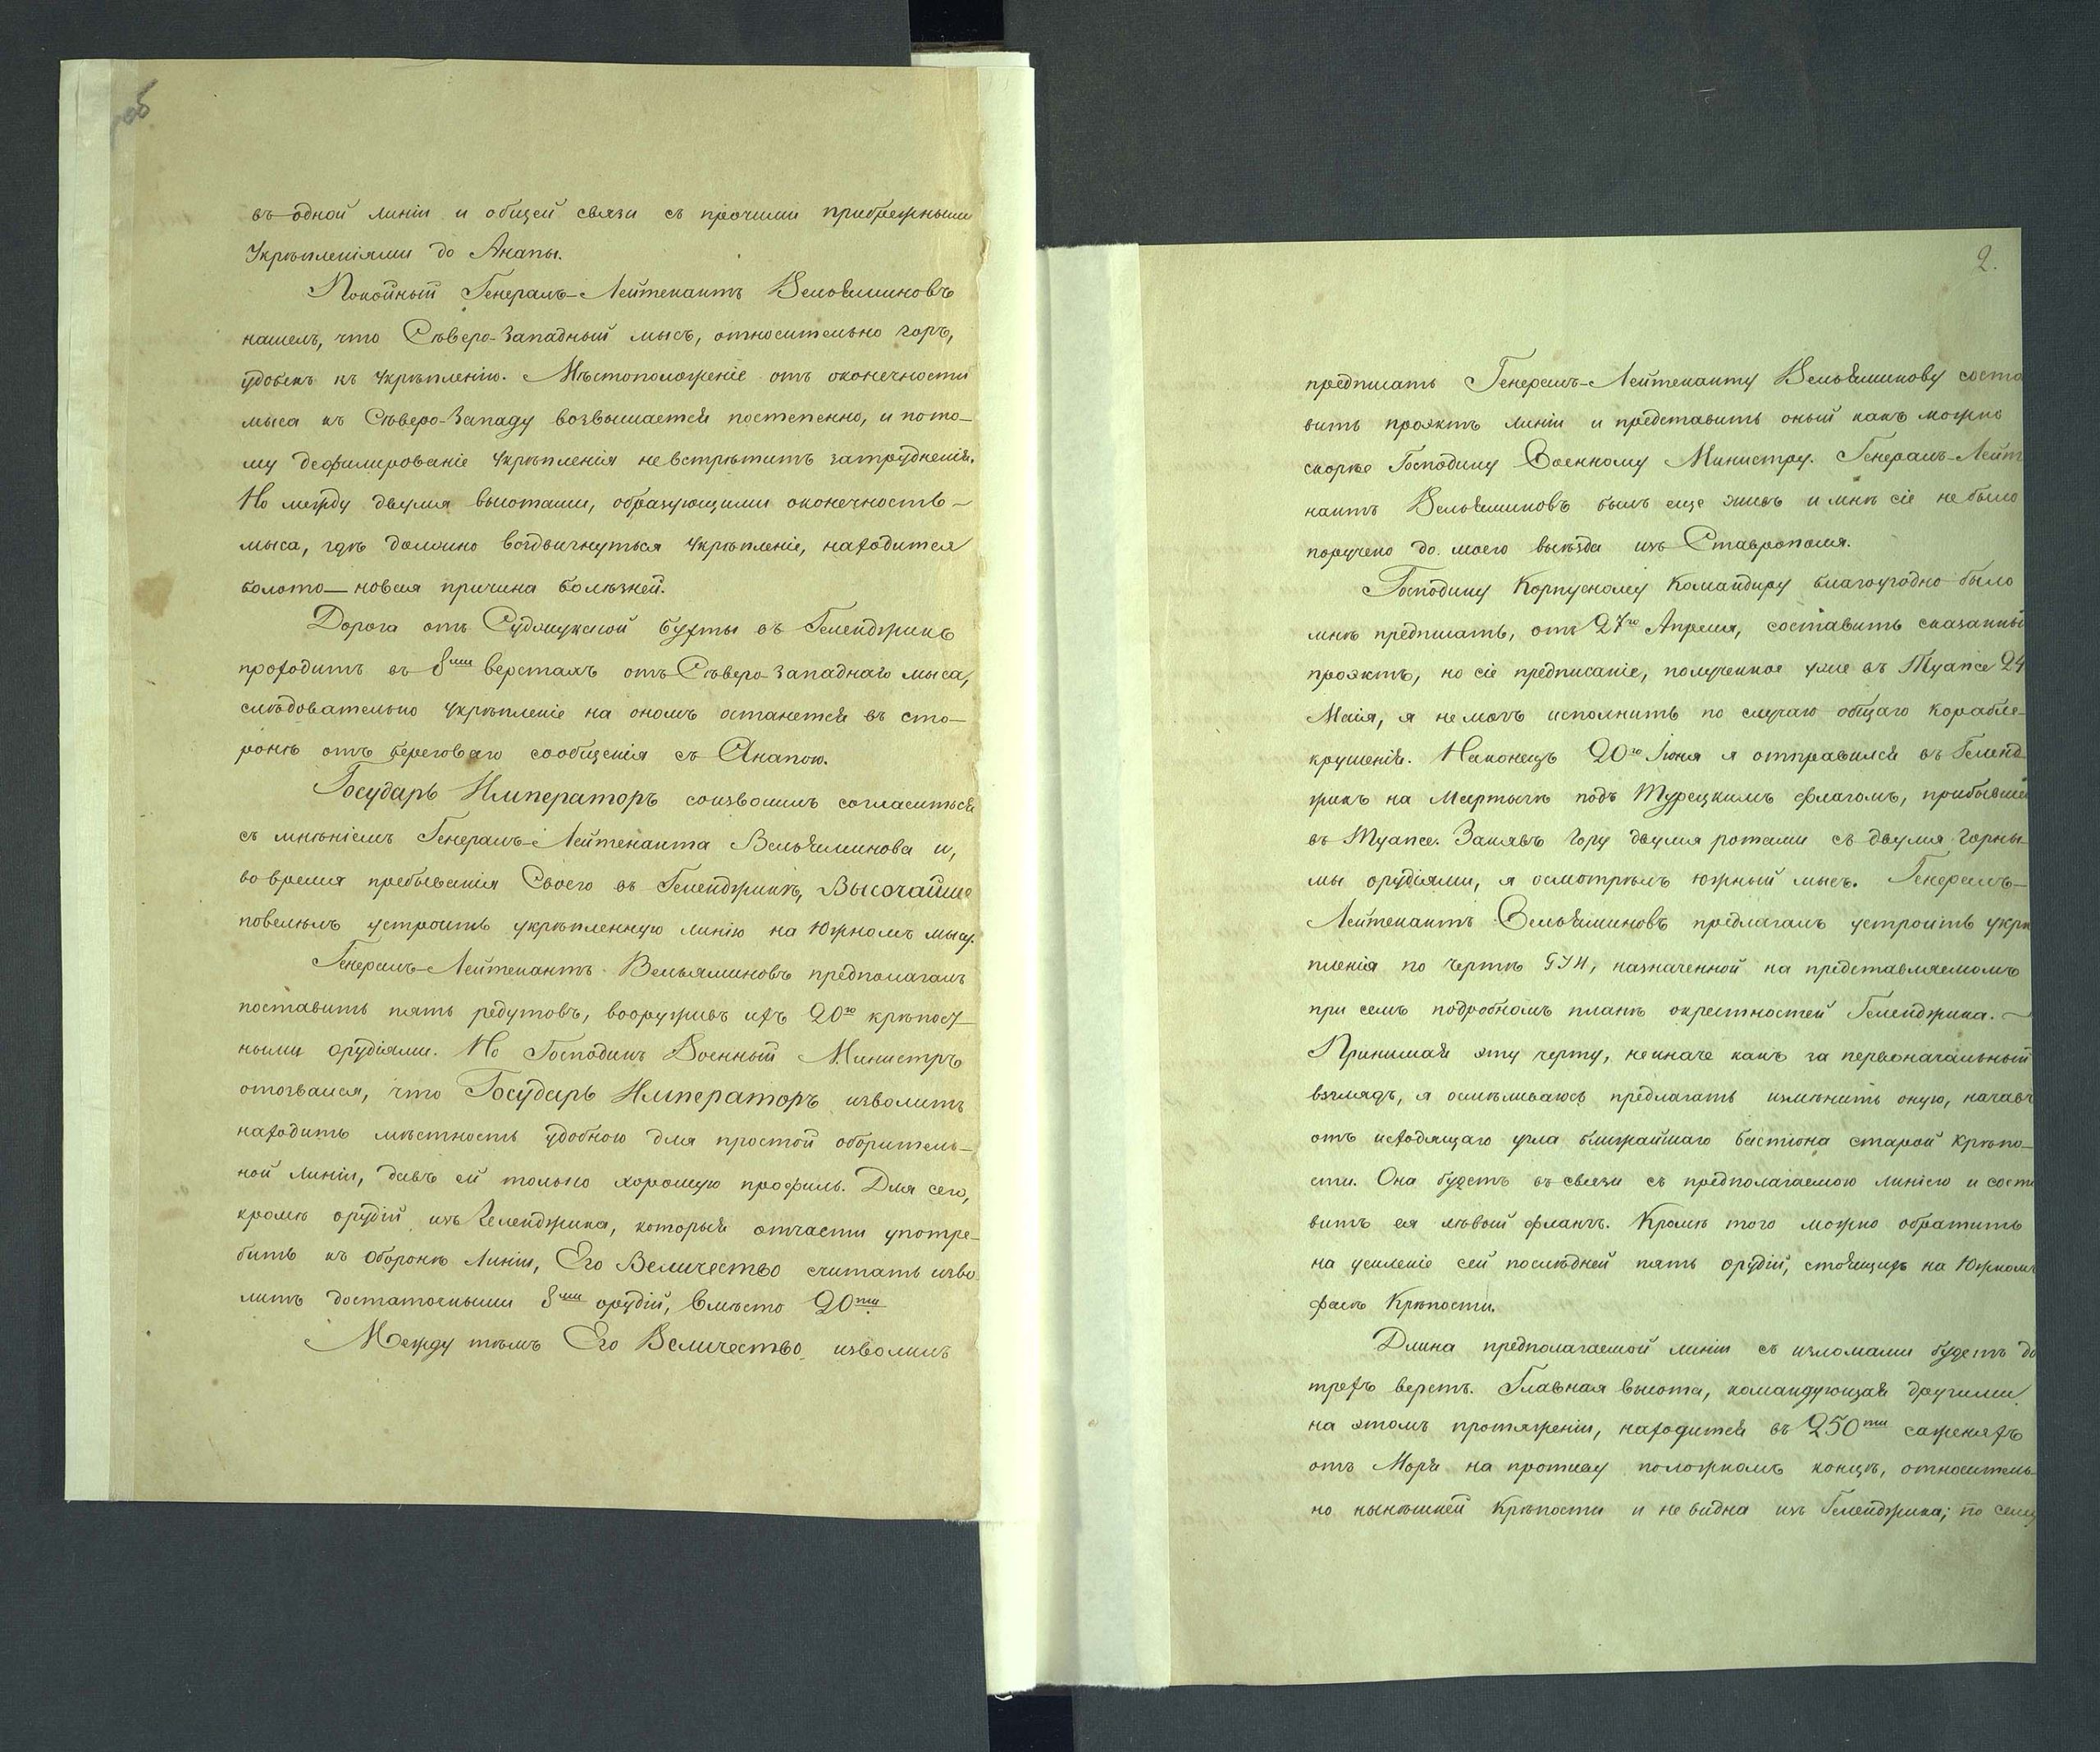 въ одной линіи и общей связи съ прочими прибрежными
Укрѣпленіями до Анапы.
Покойный Генералъ-Лейтенантъ Вельяминовъ
нашелъ, что Сѣверо-Западный мысъ, относительно горъ,
удобенъ къ укрѣпленію. Мѣстоположеніе отъ оконечности
мыса къ Сѣверо-Западу возвышается постепенно, и пото-
му дефилированіе укрѣпленія невстрѣтитъ затрудненія.
Но между двумя высотами, образующими оконечность-
мыса, гдѣ должно воздвигнуться укрѣпленіе, находится
болото — новая причина болѣзней.
Дорога отъ Суджукской бухты въ Геленджикъ
проходитъ въ 8ми верстахъ отъ Сѣверо-Западнаго мыса,
слѣдовательно укрѣпленіе на ономъ останется въ сто-
ронѣ отъ береговаго сообщенія съ Анапою.
Государь Императоръ соизволилъ согласиться
съ мнѣніемъ Генералъ-Лейтенанта Вельяминова и,
во время пребыванія Своего въ Геленджикѣ, Высочайше
повелѣлъ устроить укрѣпленную линію на Южномъ мысу.
Генералъ-Лейтенантъ Вельяминовъ предполагалъ
поставить пять редутовъ, вооруживъ ихъ 20ю крѣпост-
ными орудіями. Но Господинъ Военный Министръ
отозвался, что Государь Императоръ изволитъ
находить мѣстность удобною для простой оборитель-
ной линіи, давъ ей только хорошую профиль. Для сего,
кромѣ орудій изъ Геленджика, которыя отчасти употре-
бить къ оборонѣ линіи, Его Величество считать изво-
литъ достаточными 8ми орудій, вмѣсто 20ти
Между тѣмъ Его Величество изволилъ
2.
предписать Генералъ-Лейтенанту Вельяминову соста
вить проэктъ линіи и представить оный какъ можно
скорѣе Господину Военному Министру. Генералъ-Лейт
нантъ Вельяминовъ былъ еще живъ и мнѣ сіе не было
поручено до моего выѣзда изъ Ставрополя.
Господину Корпусному Командиру благоугодно было
мнѣ предписать, отъ 27го Апреля, составить сказанный
проэктъ, но сіе предписаніе, полученное уже въ Туапсе 24
Маія, я не могъ исполнить по случаю общаго корабле-
крушенія. Наконецъ 20го Іюня я отправился въ Геленд-
жикъ на Мартычѣ подъ Турецкимъ флагомъ, прибывшей
въ Туапсе. Занявъ гору двумя ротами съ двумя горны-
мы орудіями, я осмотрѣлъ южный мысъ. Генералъ-
Лейтенантъ Вельяминовъ предлагалъ устроить укрѣ
пленія по чертѣ GJH, назначенной на представляемомъ
при семъ подробномъ планѣ окрестностей Геленджика. -
Принимая эту черту, неиначе какъ за первоначальный
взглядъ, я осмѣливаюсь предлагать измѣнить оную, начавъ
отъ исходящаго угла ближайшаго бастіона старой крѣпо-
сти. Она будетъ въ связи съ предполагаемою линіею и соста
витъ ея лѣвый флангъ. Кромѣ того можно обратить
на усиленіе сей послѣдней пять орудій, стоящихъ на Южномъ
фасѣ Крѣпости.
Длина предполагаемой линіи съ изломами будетъ до
трехъ верстъ. Главная высота, командующая другими
на этомъ протяженіи, находится въ 250ти саженяхъ
отъ Моря на противу положномъ концѣ, относитель-
но нынѣшней Крѣпости и не видна изъ Геленджика; по сему